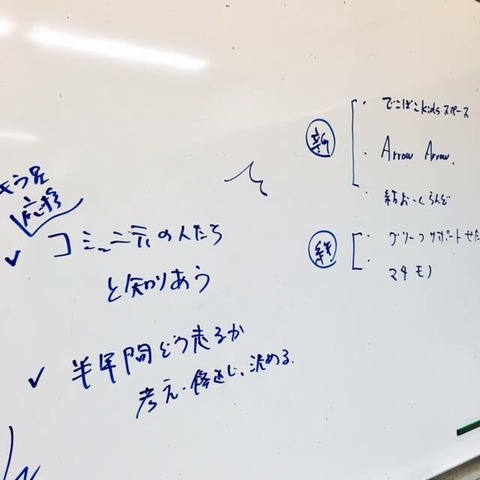 コミュニティの人たち
と知りあう
半年間どう走るか
考え・修正し、決める。
新
でこぼこkidsスペース
Arrow Arrow.
結おーくらんど
継
グリーフサポートせた
マチモノ